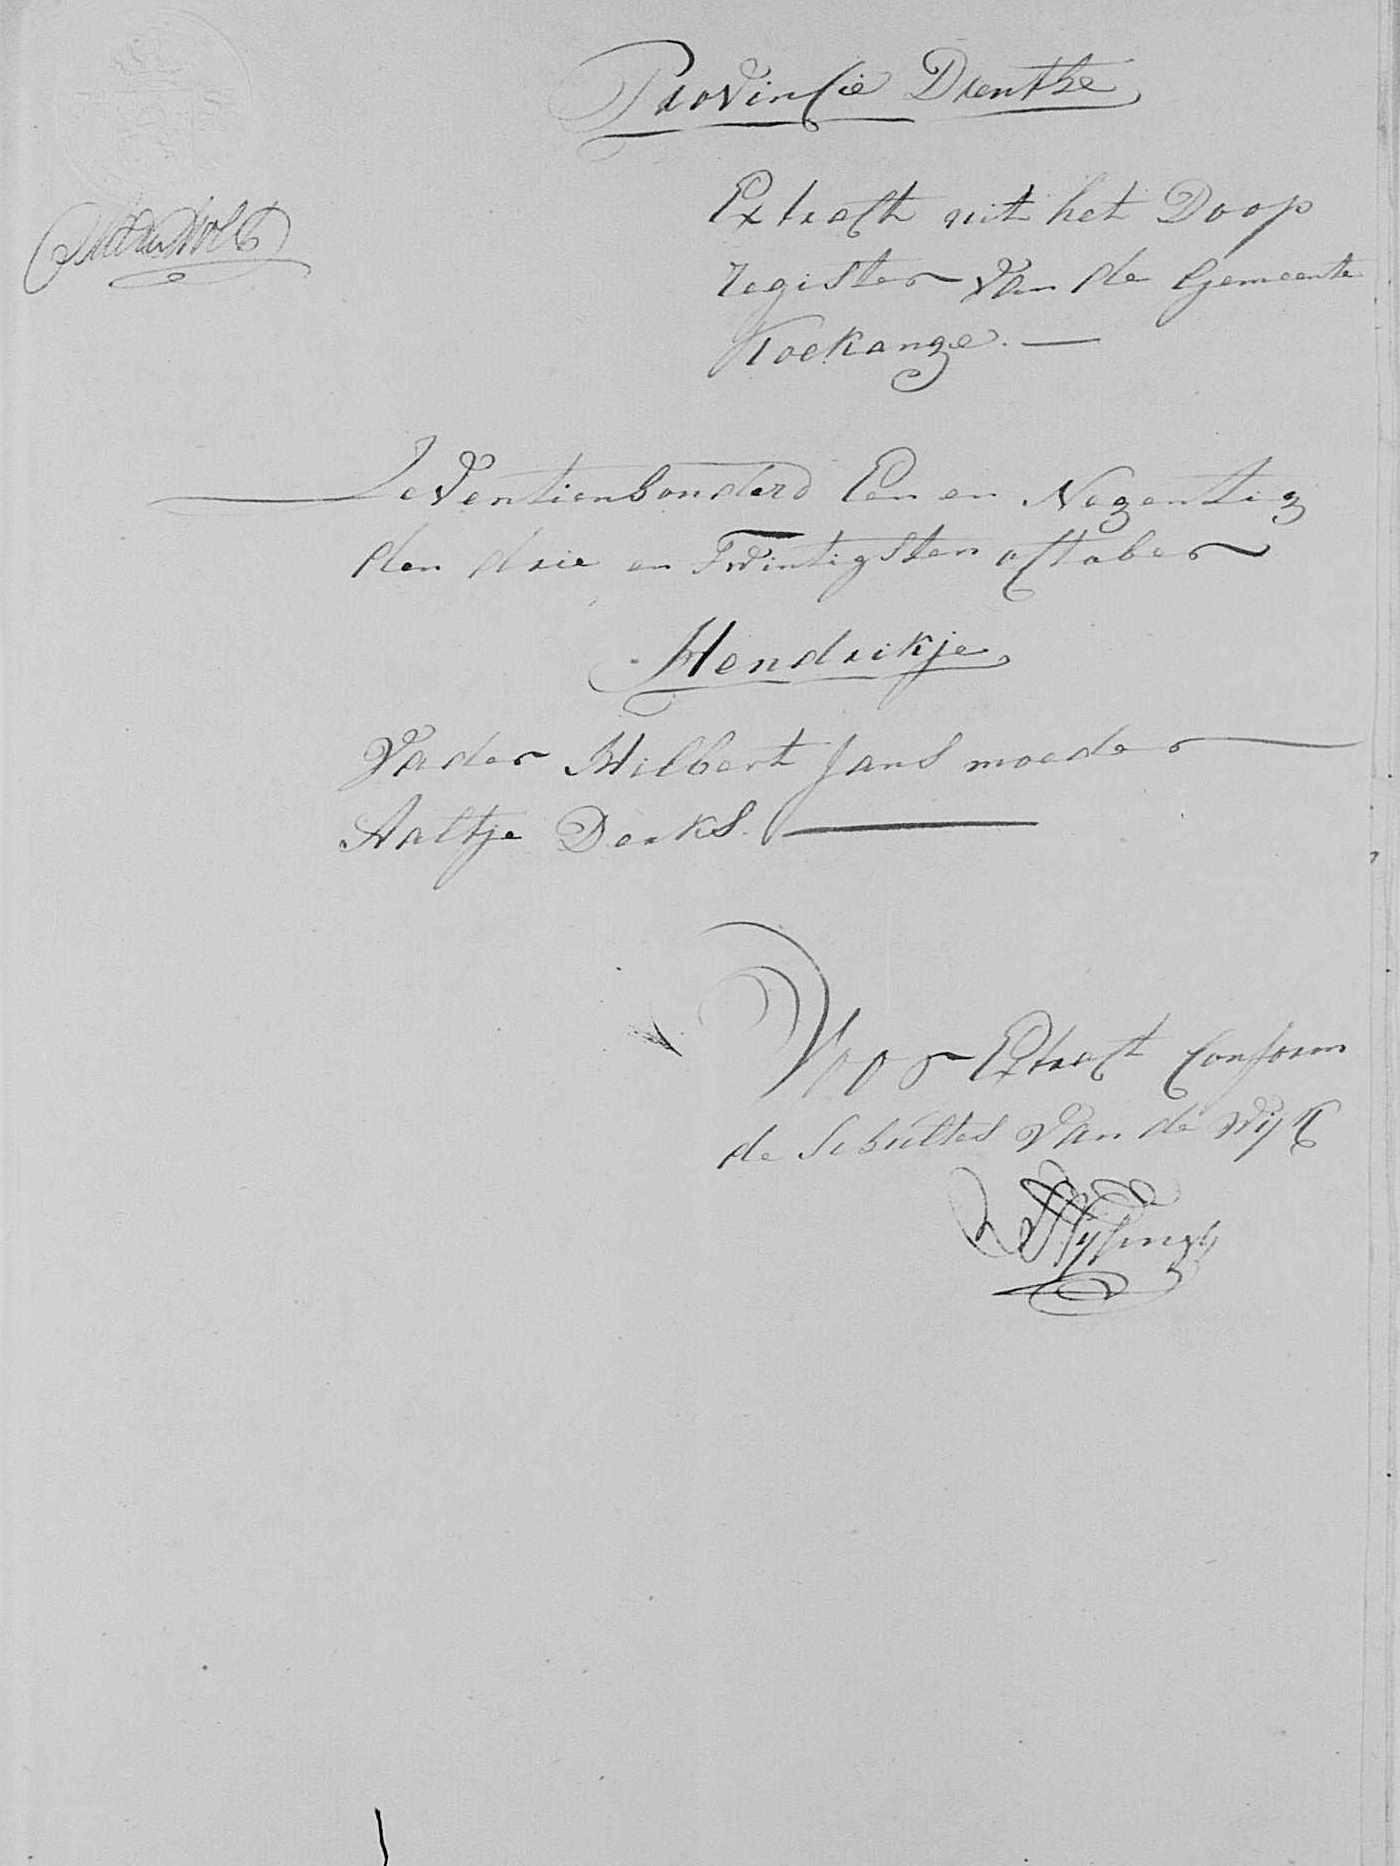 Provincie Drenthe
Extract uit het Doop
register van de Gemeente
Koekange. —
Zeventienhonderd Een en Negentig
den drie en Twintigsten october
Hendrikje
Vader Hilbert Jans moeder
Aaltje Derks. —
Voor Extract Conform
de Schultes van de Wijk